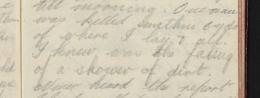 till morning. One man
was killed within 6 yds
of where I lay & all
I knew was the falling
of a shower of dirt.
never heard the report